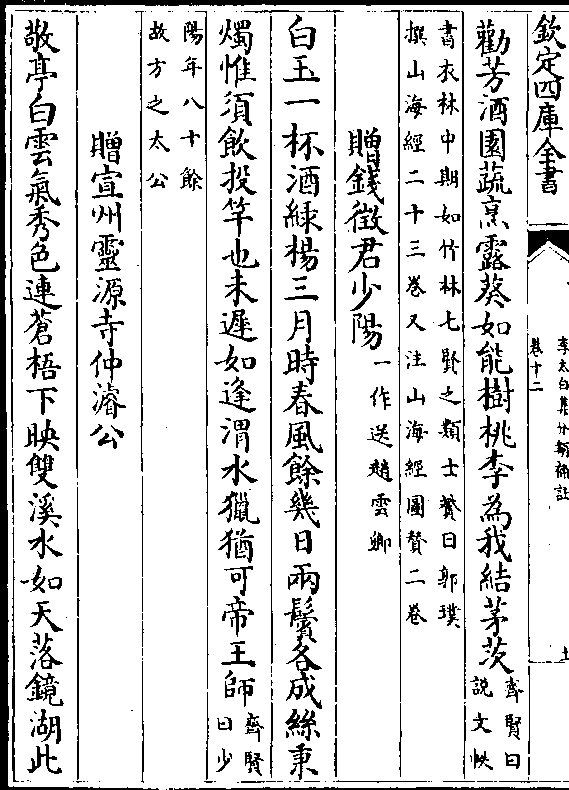 欽定四庫全書
李太白集分類補註
卷十二
勸芳酒園蔬烹露葵如能樹桃李為我結茅茨齊賢曰説文帙
書衣林中期如竹林七賢之類士贇曰郭璞
撰山海經二十三卷又注山海經圖贊二卷
贈錢徵君少陽一作送趙雲卿
白玉一杯酒緑楊三月時春風餘幾日兩鬢各成絲秉
燭惟須飲投竿也未遲如逢渭水獵猶可帝王師齊賢曰少
陽年八十餘
故方之太公
贈宣州靈源寺仲濬公
敬亭白雲氣秀色連蒼梧下映雙溪水如天落鏡湖此